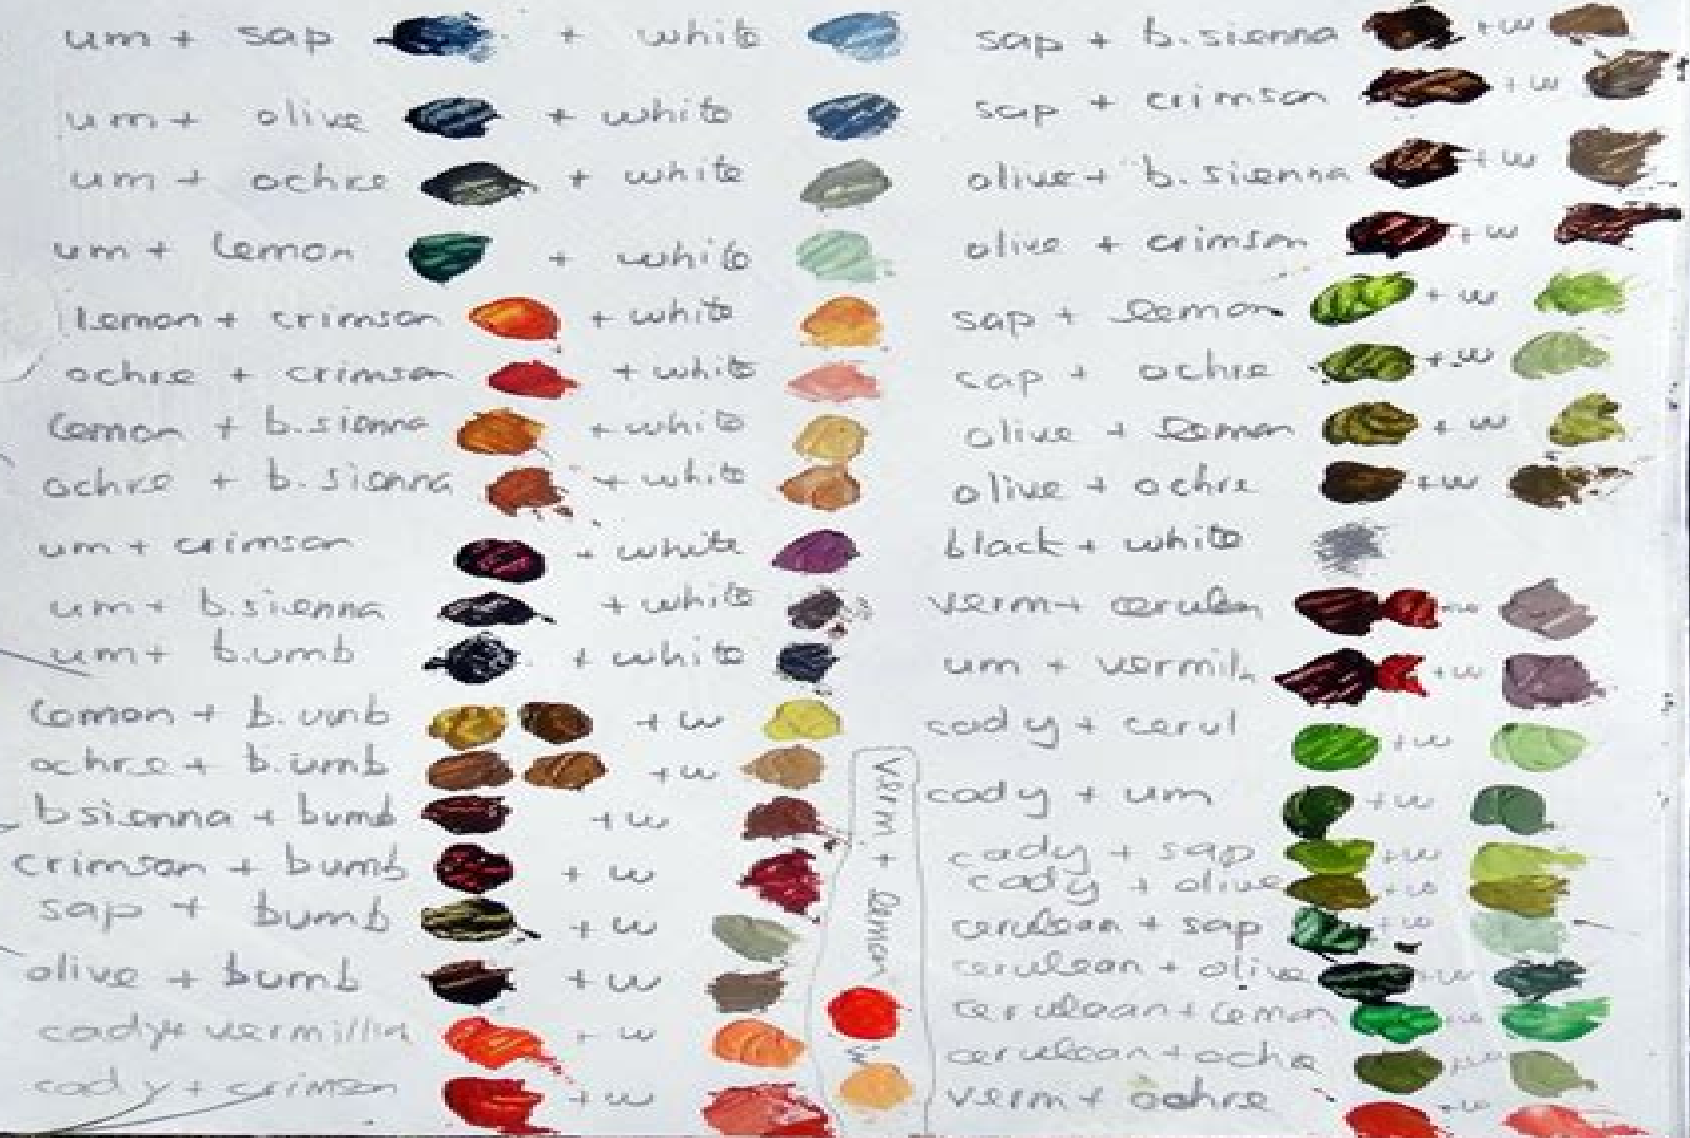 um + sap + white
um + olive + white
um + ochre + white
um + lemon + white
lemon + crimson + white
ochre + crimson + white
lemon + b.sienna + white
ochre + b.sienna + white
um + crimson + white
um + b.sienna + white
um + b.umb + white
lemon + b.umb + w
ochre + b.umb + w
bsienna + bumb + w
crimson + bumb + w
sap + bumb + w
olive + bumb + w
cady + vermillin + w
cady + crimson + w
verm + lemon
w
sap + b.sienna + w
sap + crimson + w
olive + b.sienna + w
olive + crimson + w
sap + lemon + w
sap + ochre + w
olive + lemon + w
olive + ochre + w
black + white
verm + cerulen + w
um + vermil. + w
cady + cerul + w
cady + um + w
cady + sap + w
cady + olive + w
cerulean + sap + w
cerulean + olive + w
cerulean + lemon + w
cerulean + oche + w
verm + ochre + w